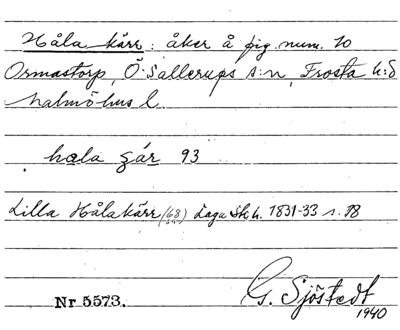 Håla kärr: åker å fig. num. 10
Ormastorp, Ö. Sallerups s:n, Frosta h:d
Malmöhus l.
hɑla ʒɑ́r 93
Lilla Hålakärr (68) Laga Sk. h. 1831-33 s. 18
Nr 5573.
G. Sjöstedt
1940